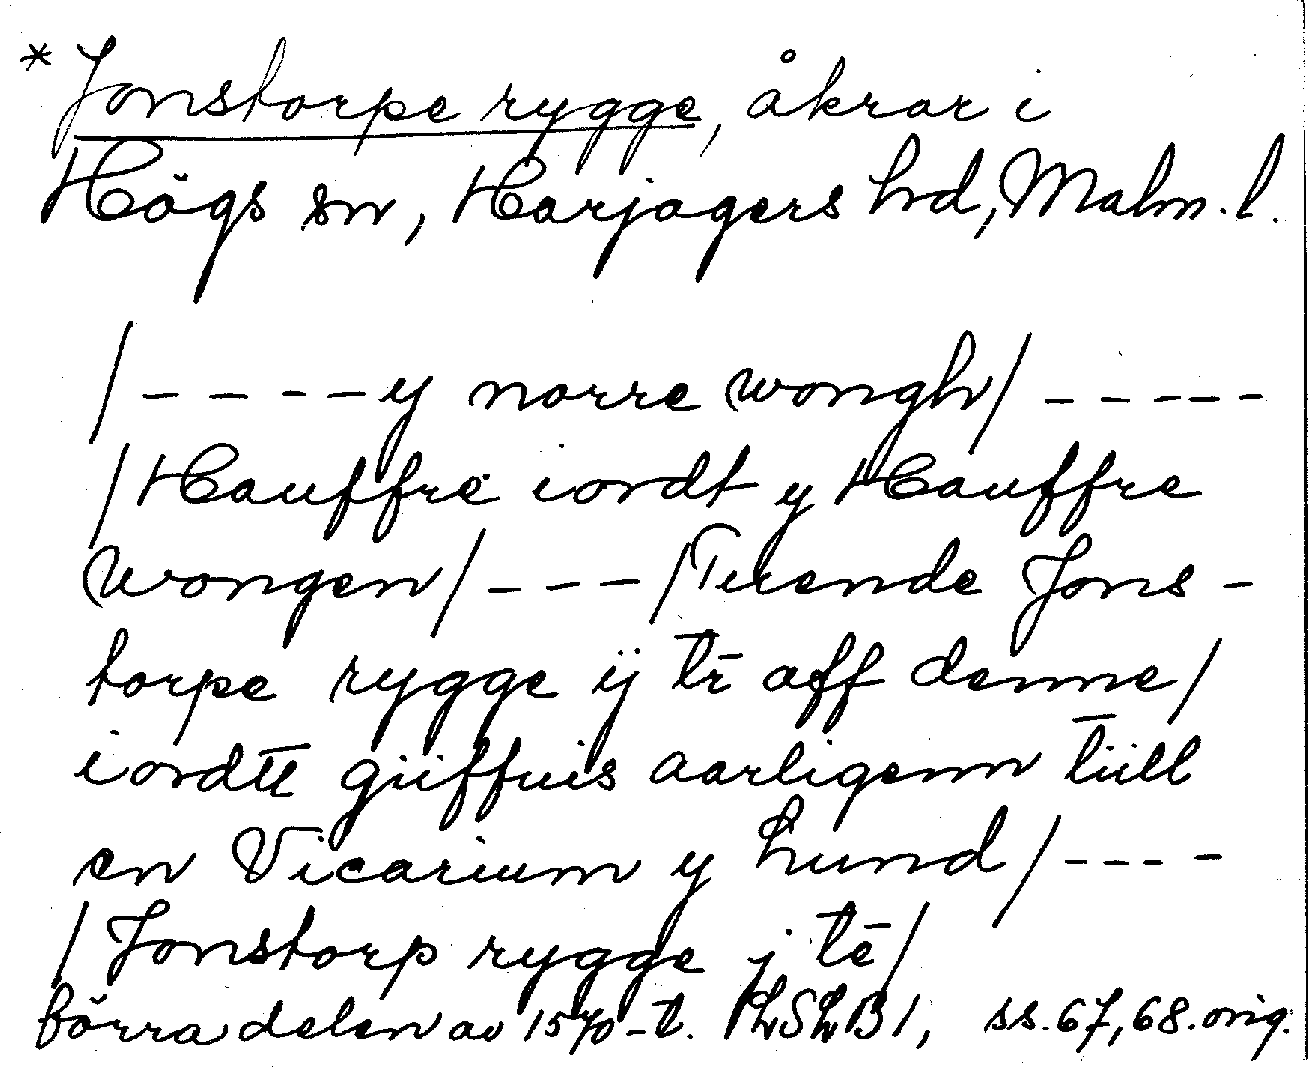 * Jonstorpe rygge, åkrar i
Högs sn, Harjagers hd, Malm. l.
/ - - - - y norre wongh / - - - - -
/ Hauffre iordt y Hauffre
Wongen / - - - / Terende Jons-
torpe rygge ÿ tr aff denne /
iordtt giiffuis aarligenn tiill
en Vicarium y Lund / - - - -
/ Jonstorp rygge j tē /
förra delen av 1570-t. LSLB 1, ss. 67, 68. orig.